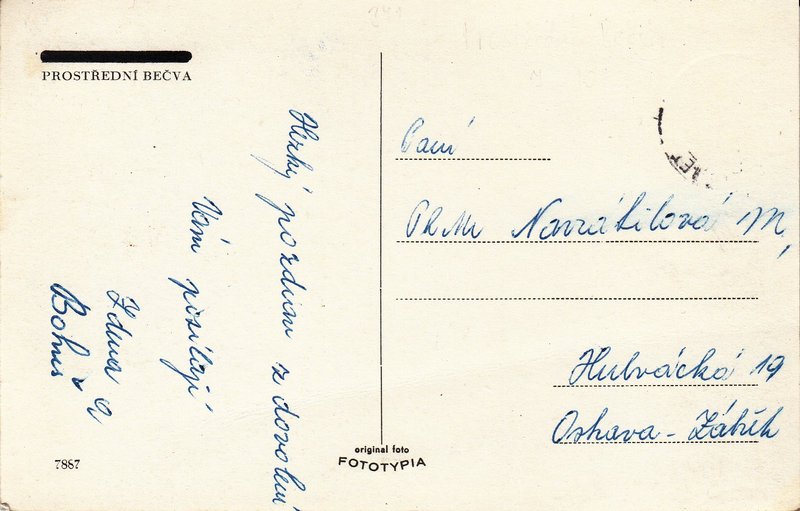 PROSTŘEDNÍ BEČVA
Hezký pozdrav z dovolené
Vám posílají
Zdena a
Bohuš
7887
original foto
FOTOTYPIA
Paní
Navrátilová M,
Hulvácká 19
Ostrava-Zábřeh